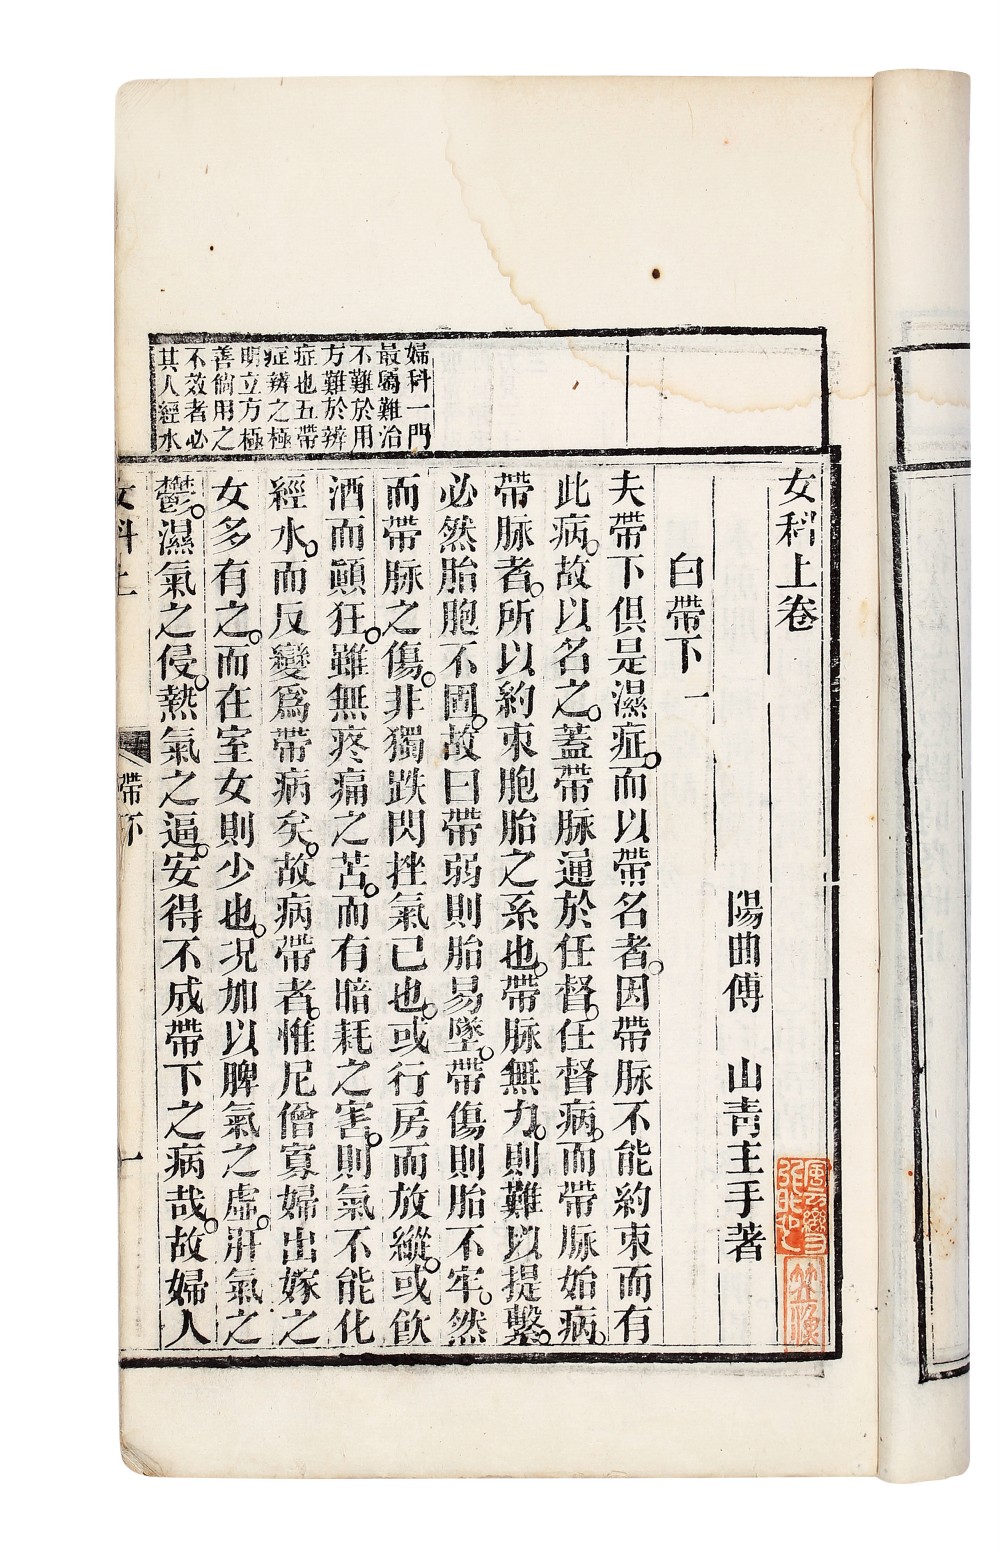 婦科一門
最屬難治
不難於用
方難於辨
症也五帶
症辨之極
明立方極
善倘用之
不效者必
其人經水
女科上卷
陽曲傅　山青主手著
白帶下一
夫帶下俱是濕症。而以帶名者。因帶脉不能約束而有
此病。故以名之。蓋帶脉通於任督。任督病。而帶脉始病。
帶脉者。所以約束胞胎之系也。帶脉無力。則難以提繫。
必然胎胞不固。故曰帶弱則胎易墜。帶傷則胎不牢。然
而帶脉之傷。非獨跌閃挫氣已也。或行房而放縱。或飲
酒而顚狂。雖無疼痛之苦。而有暗耗之害。則氣不能化
經水。而反變爲帶病矣。故病帶者。惟尼僧寡婦出嫁之
女多有之。而在室女則少也。况加以脾氣之虛。肝氣之
鬱。濕氣之侵。熱氣之逼。安得不成帶下之病哉。故婦人
女科上
帶下
一